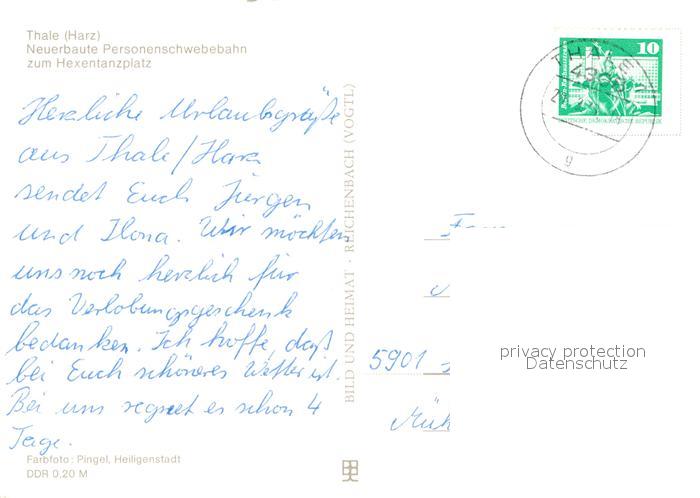 Thale (Harz)
Neuerbaute Personenschwebebahn
zum Hexentanzplatz
Herzliche Urlaubsgrüße
aus Thale/Harz
sendet Euch Jürgen
und Ilona. Wir möchten
uns noch herzlich für
das Verlobungsgeschenk
bedanken. Ich hoffe, daß
bei Euch schöneres Wetter ist.
Bei uns regnet es schon 4
Tage.
Farbfoto: Pingel, Heiligenstadt
DDR 0,20 M
BILD UND HEIMAT · REICHENBACH (VOGTL)
10
DEUTSCHE DEMOKRATISCHE REPUBLIK
THALE
g
5901
Müh
privacy protection
Datenschutz